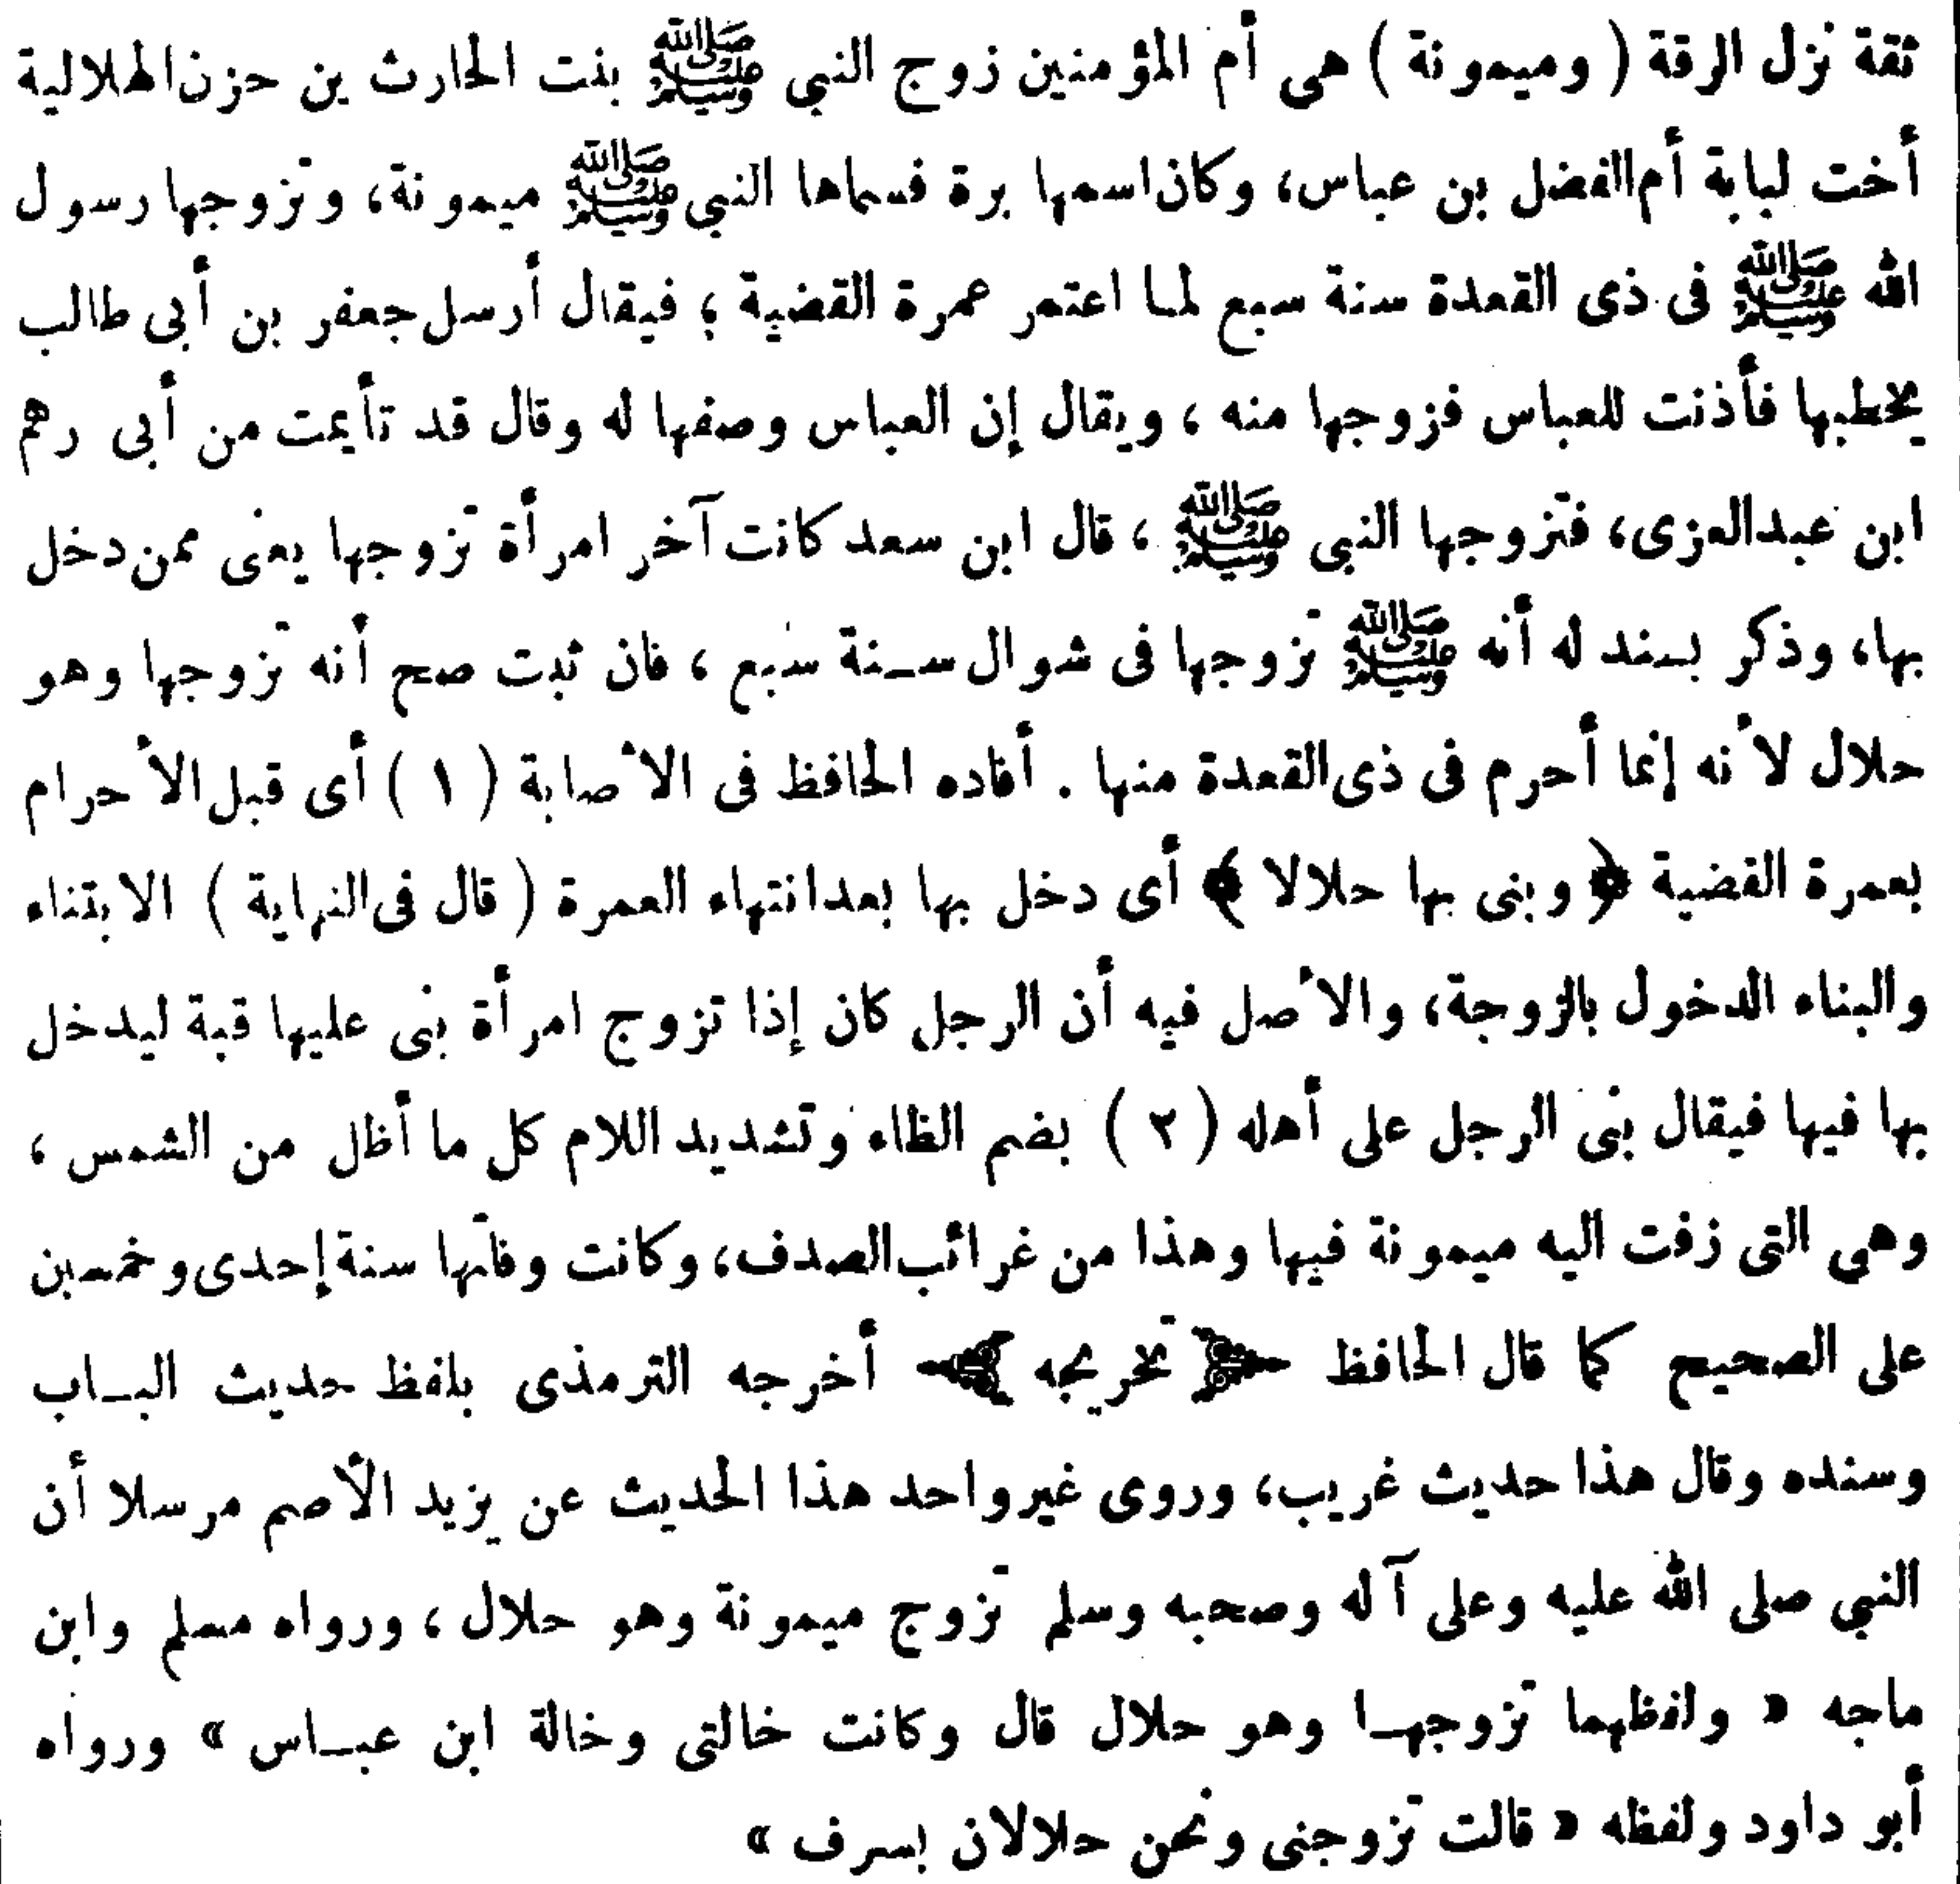 ثقة نزل الرقة ( وميمونة ) هى أم المؤمنين زوج النبي ﷺ بنت الحارث بن حزن الهلالية
أخت لبابة أم الفضل بن عباس، وكان اسمها برة فسماها النبي ﷺ ميمونة، وتزوجها رسول
الله ﷺ فى ذى القعدة سنة سبع لما اعتمر عمرة القضية ؛ فيقال أرسل جعفر بن أبى طالب
يخطبها فأذنت للعباس فزوجها منه ، ويقال إن العباس وصفها له وقال قد تأيمت من أبى رهم
ابن عبدالعزى، فتزوجها النبى ﷺ ، قال ابن سعد كانت آخر امرأة تزوجها يعنى ممن دخل
بها، وذكر بسند له أنه ﷺ تزوجها فى شوال سنة سبع ، فان ثبت صح أنه تزوجها وهو
حلال لأنه إنما أحرم فى ذى القعدة منها . أفاده الحافظ فى الأصابة ( ١ ) أى قبل الأحرام
بعمرة القضية ﴿ وبنى بها حلالا ﴾ أى دخل بها بعد انتهاء العمرة ( قال فى النهاية ) الابتناء
والبناء الدخول بالزوجة، والأصل فيه أن الرجل كان إذا تزوج امرأة بنى عليها قبة ليدخل
بها فيها فيقال بنى الرجل على أهله ( ٢ ) بضم الظاء وتشديد اللام كل ما أظل من الشمس ،
وهي التى زفت اليه ميمونة فيها وهذا من غرائب الصدف، وكانت وفاتها سنة إحدى وخمسين
على الصحيح كما قال الحافظ ﴿ تخريجه ﴾ أخرجه الترمذى بلفظ حديث البـاب
وسنده وقال هذا حديث غريب، وروى غير واحد هذا الحديث عن يزيد الأصم مرسلا أن
النبي صلى الله عليه وعلى آله وصحبه وسلم تزوج ميمونة وهو حلال ، ورواه مسلم وابن
ماجه « ولفظهما تزوجهـا وهو حلال قال وكانت خالتى وخالة ابن عبـاس » ورواه
أبو داود ولفظه « قالت تزوجنى ونحن حلالان بسرف »